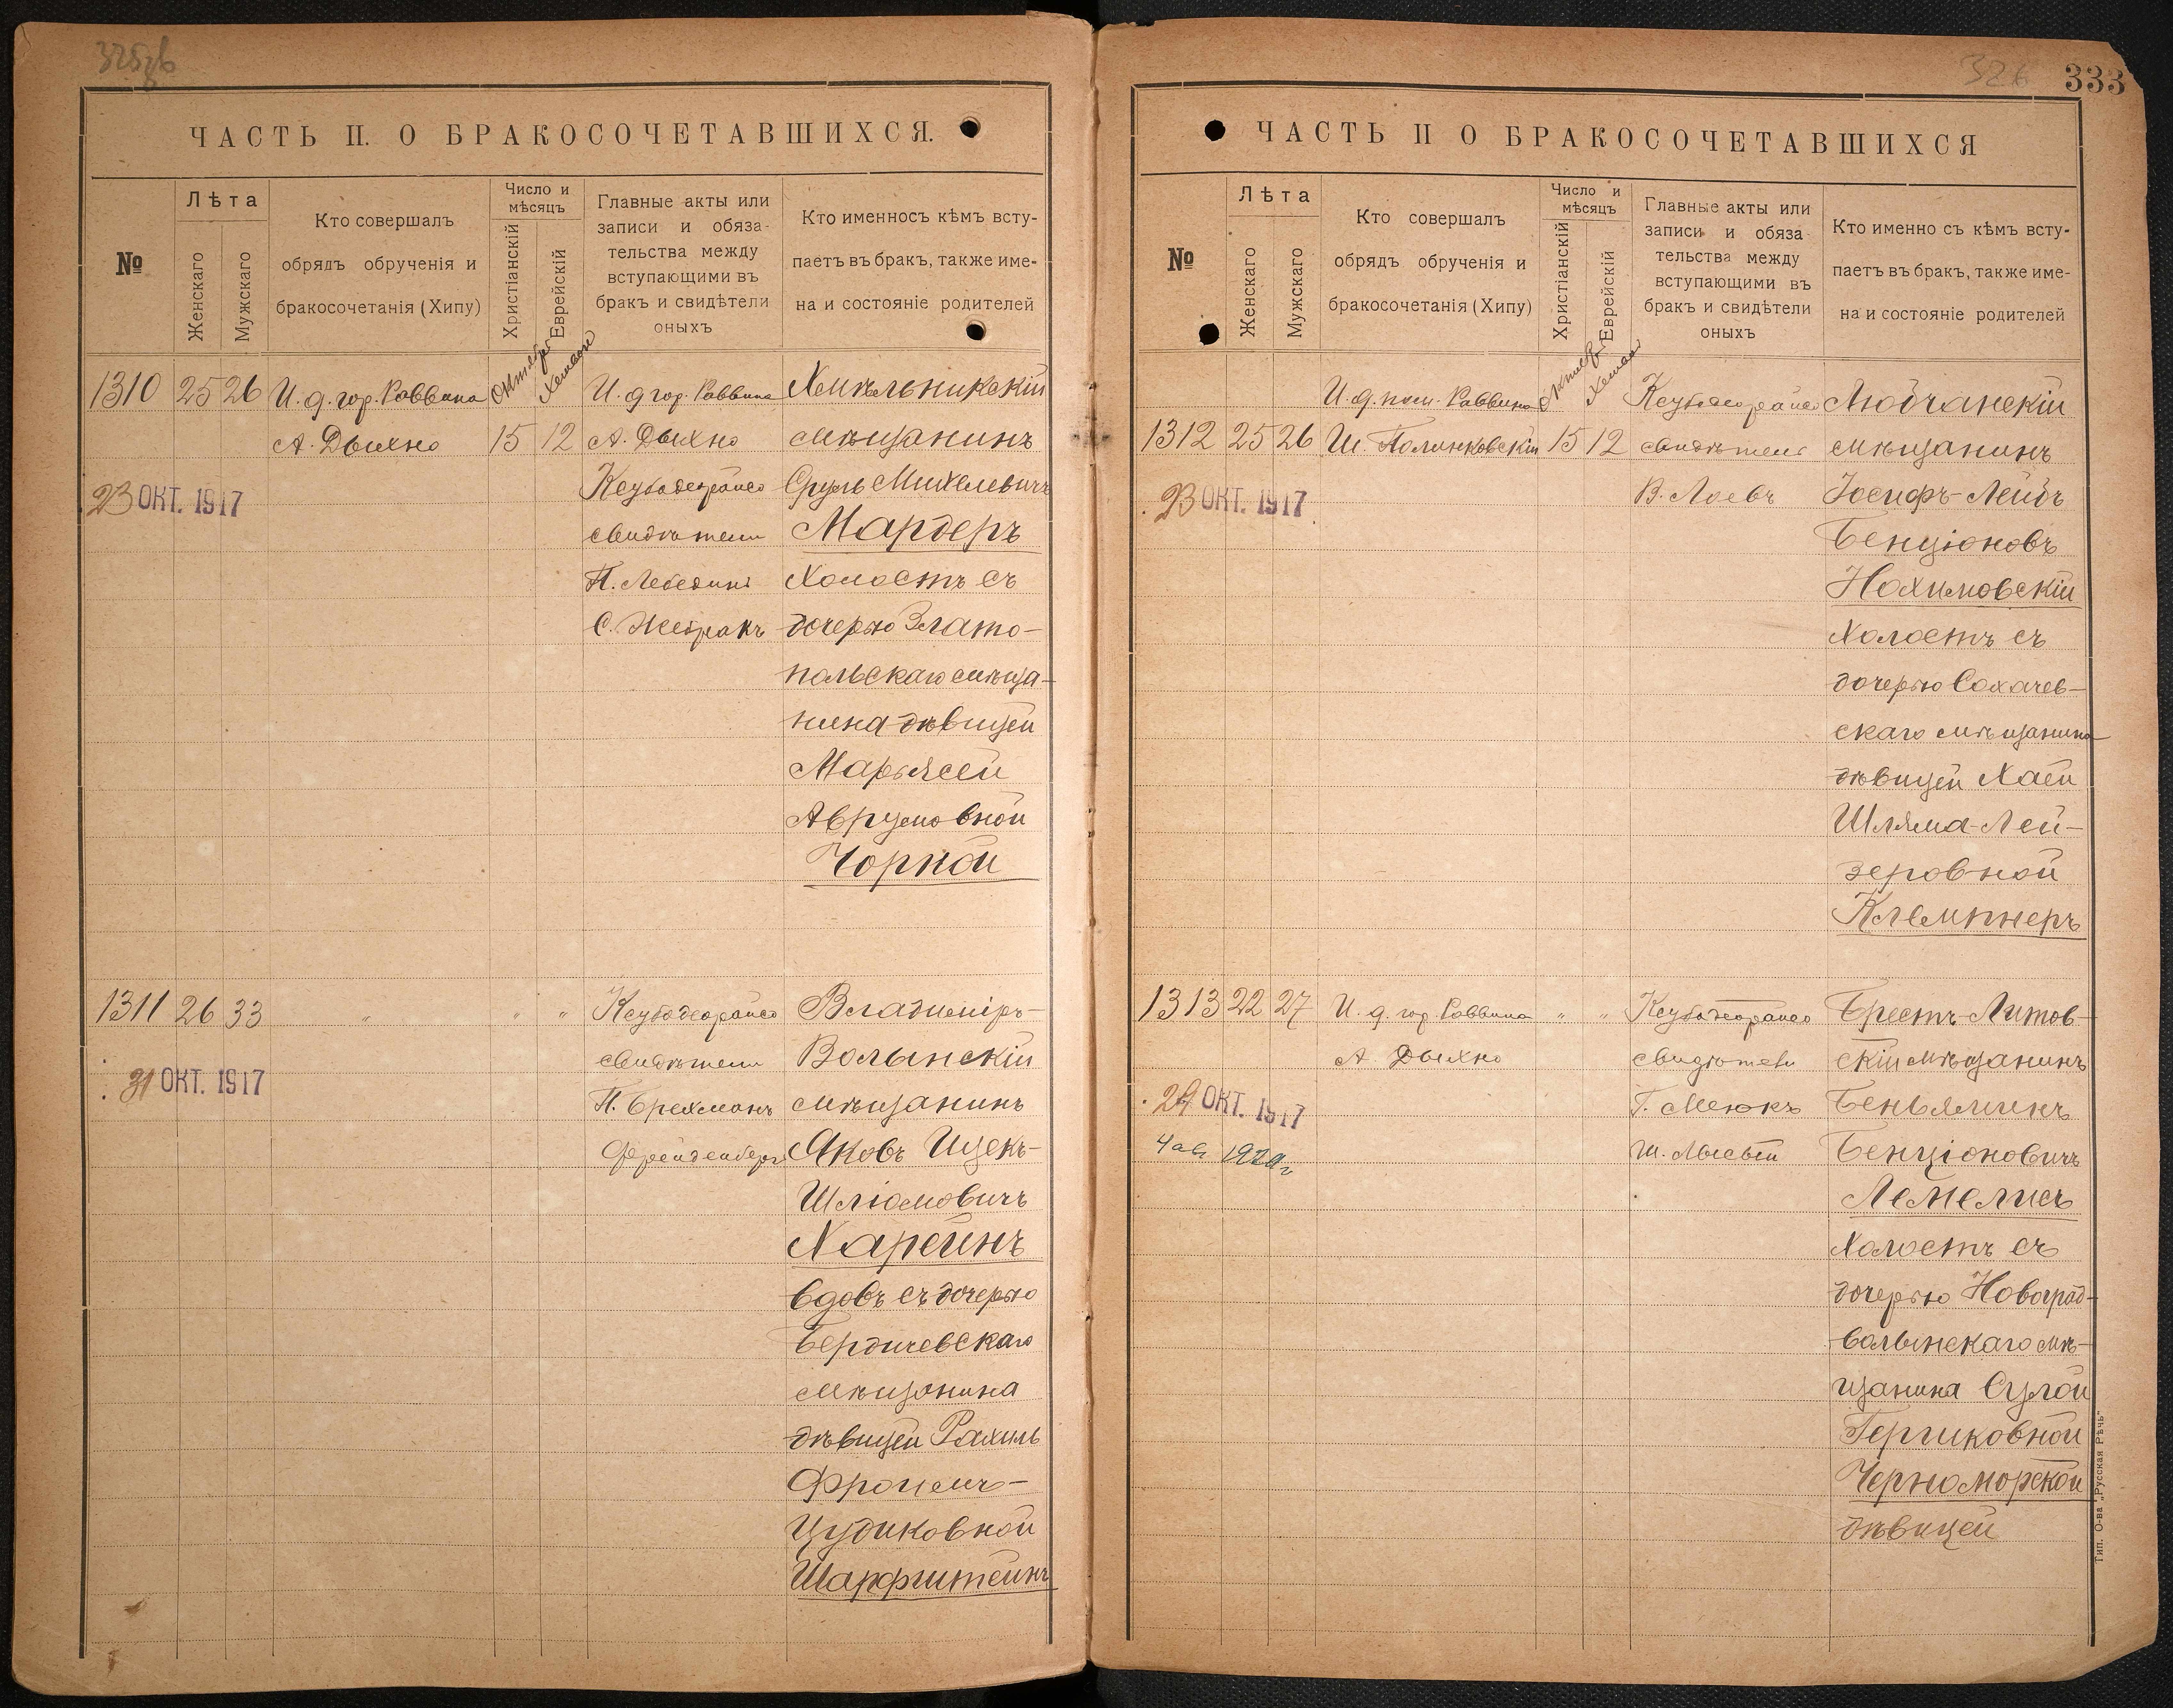 ЧАСТЬ II. О БРАКОСОЧЕТАВШИХСЯ.
№
Лѣта
Женскаго
Мужскаго
Кто совершалъ
обрядъ обрученія и
бракосочетанія (Хипу)
Число и
мѣсяцъ
Христіанскій
Еврейскій
Главные акты или
записи и обяза-
тельства между
вступающими въ
бракъ и свидѣтели
оныхъ
Кто именносъ кѣмъ всту-
паетъ въ бракъ, также име-
на и состояніе родителей
1310 25 26
И. д. гор. Раввина
А. Дыхно
Октября
15 12
И. д гор. Раввина
А. Дыхно
свидѣтели
П. Лебединъ
С. Жебракъ
Хмѣльникскій
мѣщанинъ
Сруль Михелевичъ
Мардеръ
Холостъ съ
дочерью Злато-
польскаго мѣща-
нина дѣвицей
Марьясей
Аврумовной
Чорной
23 ОКТ. 1917
1311 26 33
" " "
свидѣтели
П. Брехманъ
Владиміръ-
Волынскій
мѣщанинъ
Яковъ Ицекъ-
Шліомовичъ
Харейнъ
вдовъ съ дочерью
Бердичевскаго
мѣщанина
дѣвицей Рахиль
Цудиковной
Шарфштейнъ
31 ОКТ. 1917
326 333
ЧАСТЬ II О БРАКОСОЧЕТАВШИХСЯ
№
Лѣта
Женскаго
Мужскаго
Кто совершалъ
обрядъ обрученія и
бракосочетанія (Хипу)
Число и
мѣсяцъ
Христіанскій
Еврейскій
Главные акты или
записи и обяза-
тельства между
вступающими въ
бракъ и свидѣтели
оныхъ
Кто именно съ кѣмъ всту-
паетъ въ бракъ, также име-
на и состояніе родителей
1312 25 26
И. д. пом. Раввина
Октября
15 12
свидѣтели
В. Лоевъ
Любчанскій
мѣщанинъ
Іосифъ-Лейбъ
Бенціоновъ
Нохимовскій
Холостъ съ
дочерью Сохачев-
скаго мѣщанина
дѣвицей Хаей
Шляма-Лей-
зеровной
Клемпнеръ
23 ОКТ. 1917
1313 22 27
И. д. гор. Раввина
А. Дыхно
" "
свидѣтели
Брестъ-Литов-
скій мѣщанинъ
Беньяминъ
Бенціоновичъ
Лемелисъ
Холостъ съ
дочерью Новоград-
волынскаго мѣ-
щанина Сулой
Гершковной
Черноморской
дѣвицей
29 ОКТ. 1917
Тип. О-ва „Русская Рѣчь"